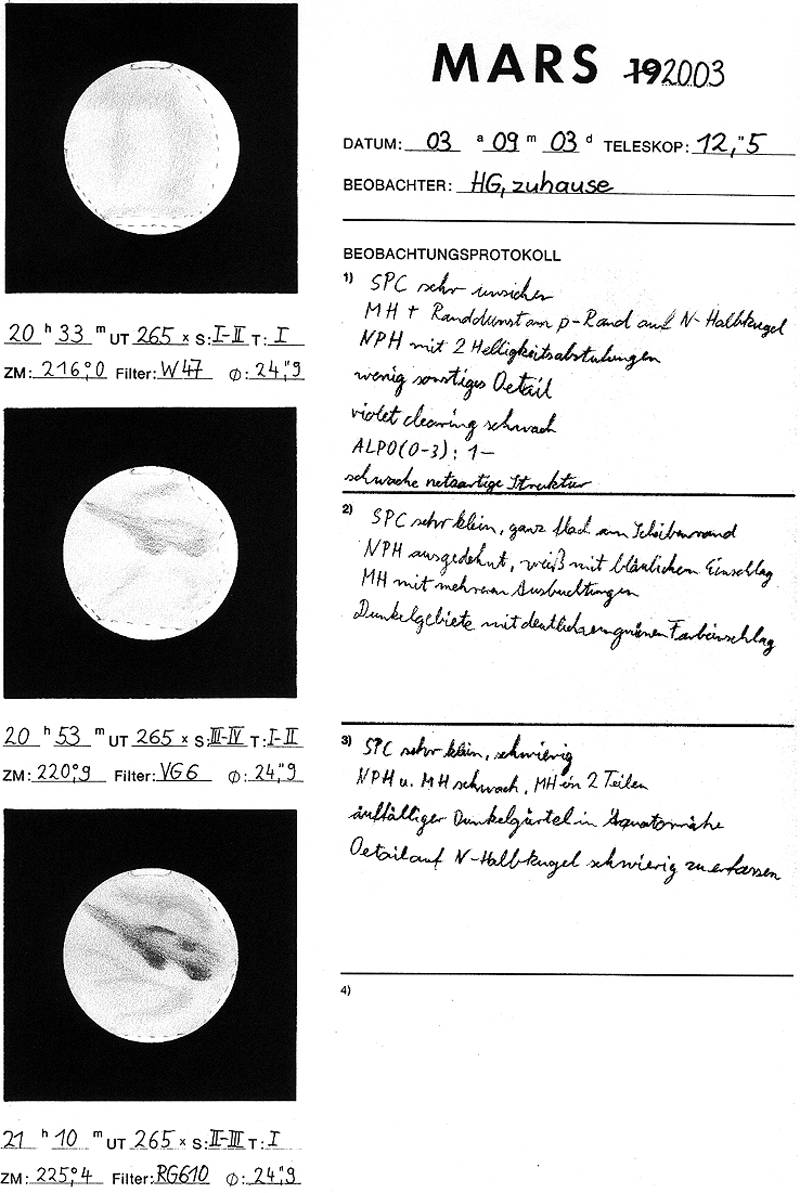 MARS 192003
DATUM: 03 a 09 m 03 d TELESKOP: 12,"5
BEOBACHTER: HG, zuhause
BEOBACHTUNGSPROTOKOLL
1) SPC sehr unsicher
MH + Randdunst am p-Rand auf N-Halbkugel
NPH mit 2 Helligkeitsabstufungen
wenig sonstiges Detail
violet clearing schwach
ALPO(0-3): 1-
schwache netzartige Struktur
20 h 33 m UT 265 x S: I-II T: I
ZM: 216°,0 Filter: W47 Ø: 24,"9
2) SPC sehr klein, ganz flach am Scheibenrand
NPH ausgedehnt, weiß mit bläulichem Einschlag
MH mit mehreren Ausbuchtungen
Dunkelgebiete mit deutlichem grünen Farbeinschlag
20 h 53 m UT 265 x S: III-IV T: I-II
ZM: 220°,9 Filter: VG6 Ø: 24,"9
3) SPC sehr klein, schwierig
NPH u. MH schwach, MH in 2 Teilen
auffälliger Dunkelgürtel in Äquatornähe
Detail auf N-Halbkugel schwierig zu erfassen
21 h 10 m UT 265 x S: II-III T: I
ZM: 225°,4 Filter: RG610 Ø: 24,"9
4)